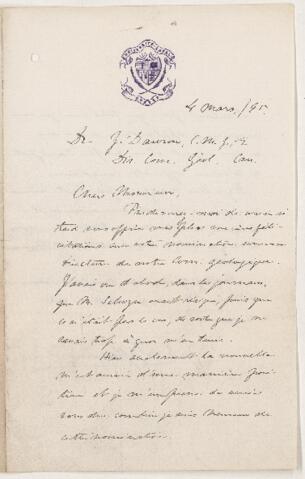 4 mars/95
Dr. G. Dawson, C.M.G.
Dir. Com. Géol. Can.
Cher Monsieur,
Pardonnez-moi de venir si
tard vous offrir mes plus sincères félicitations
sur votre nomination comme
directeur de notre Com. géologique.
J'avais vu d'abord, dans les journaux,
que M. Selwyn avait résigné, puis que
ce n'était pas le cas, de sorte que je ne
savais trop à quoi m'en tenir.
Hier seulement la nouvelle
m'est arrivée d'une manière positive
et je m'empresse de venir
vous dire combien je suis heureux de
cette nomination.